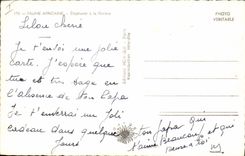 LA FAUNE AFRICAINE
Éléphants à la Rivière
PHOTO
VÉRITABLE
Lilou chérie
Je t'envoi une jolie
carte. J'espère que
tu es très sage en
l'absence de ton Papa
Je t'enverrai un joli
cadeau dans quelque
jours
ton Papa qui
t'aime beaucoup et que